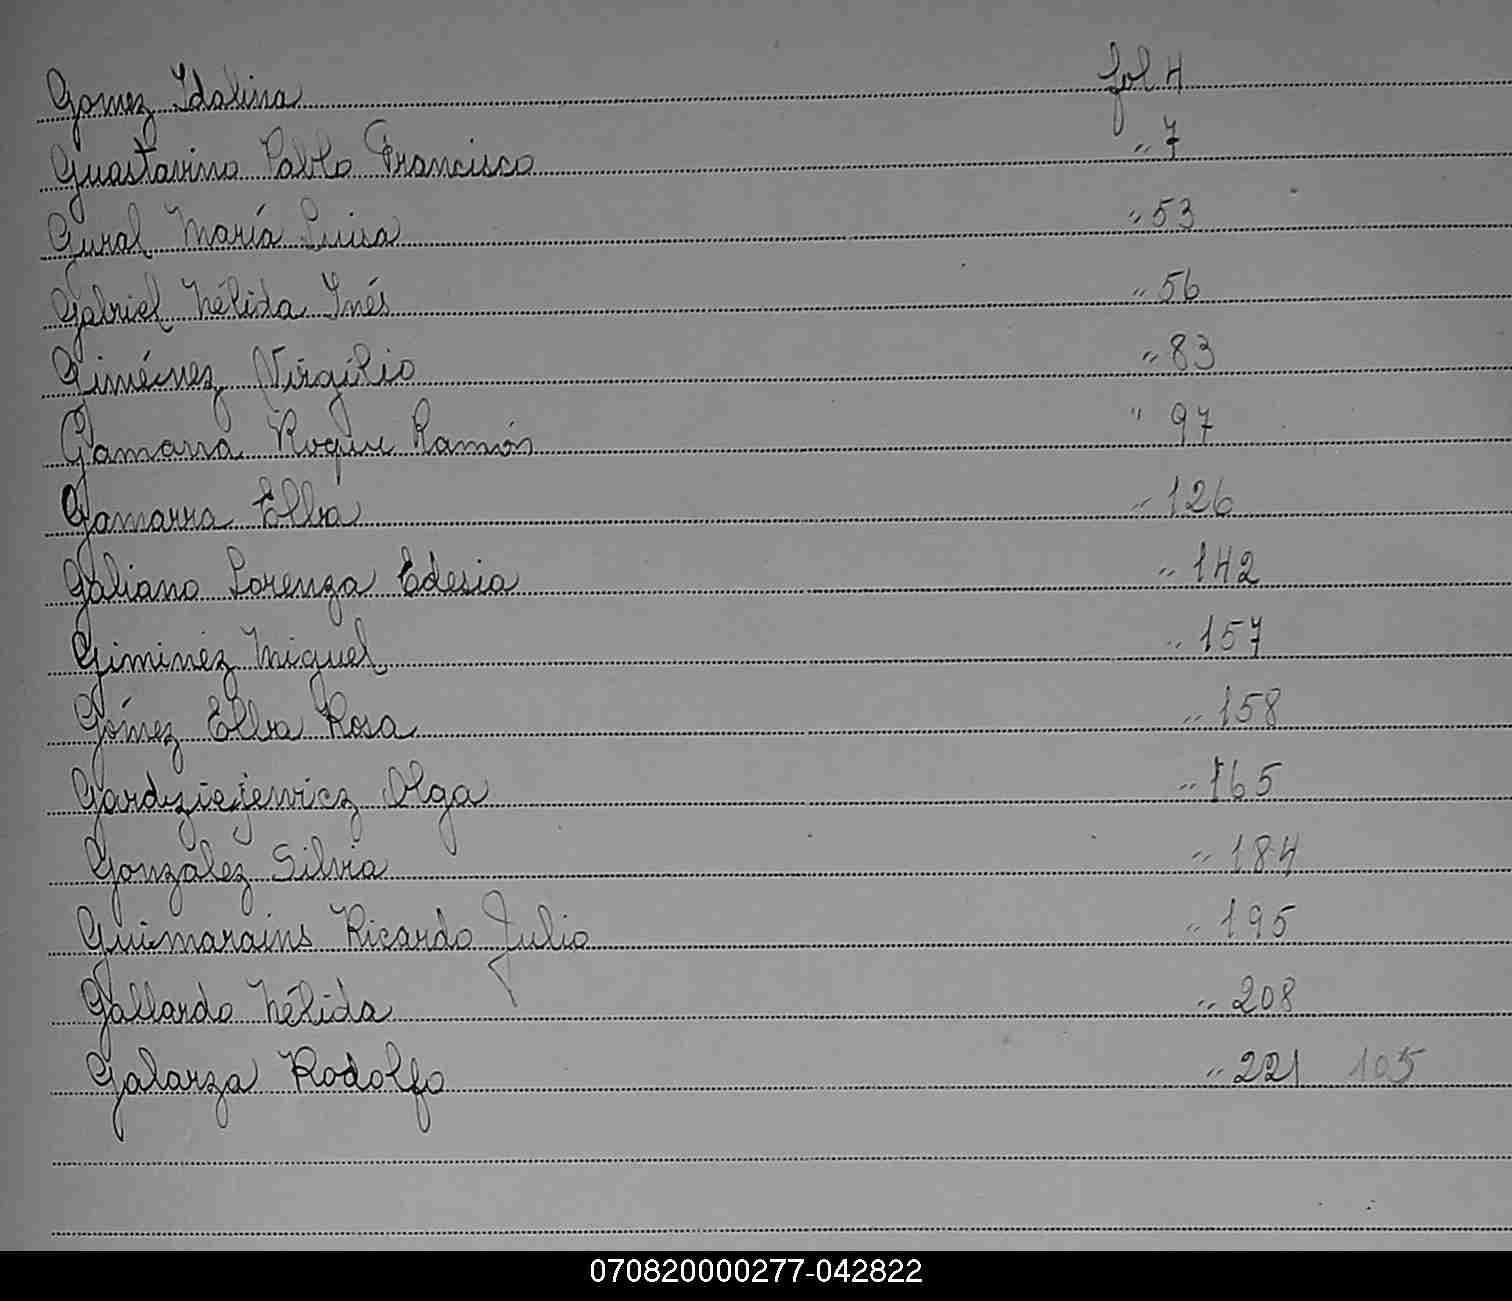 Gomez Idalina fol 4
Guastavino Pablo Francisco " 7
Gural María Luisa " 53
Gabriel Nélida Inés " 56
Giménez Virgilio " 83
Gamarra Roque Ramón " 97
Gamarra Elba " 126
Galiano Lorenza Edesia " 142
Giminéz Miguel " 157
Gómez Elba Rosa " 158
Gardziejewicz Olga " 165
González Silvia " 184
Guimarains Ricardo Julio " 195
Gallardo Nélida " 208
Galarza Rodolfo " 221 105
070820000277-042822